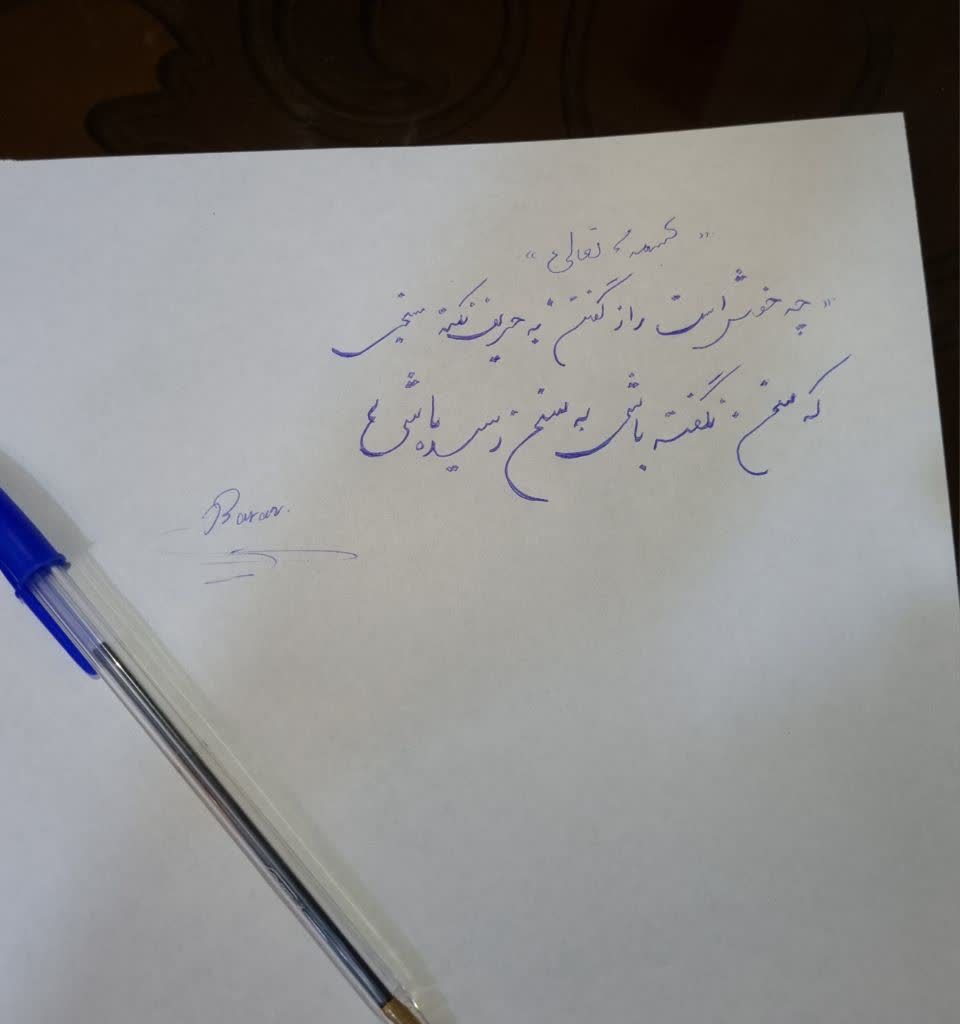 « بسمه تعالی »
« چه خوش است راز گفتن به حریف نکته سنجی
که سخن نگفته باشی به سخن رسیده باشی »
Baran.